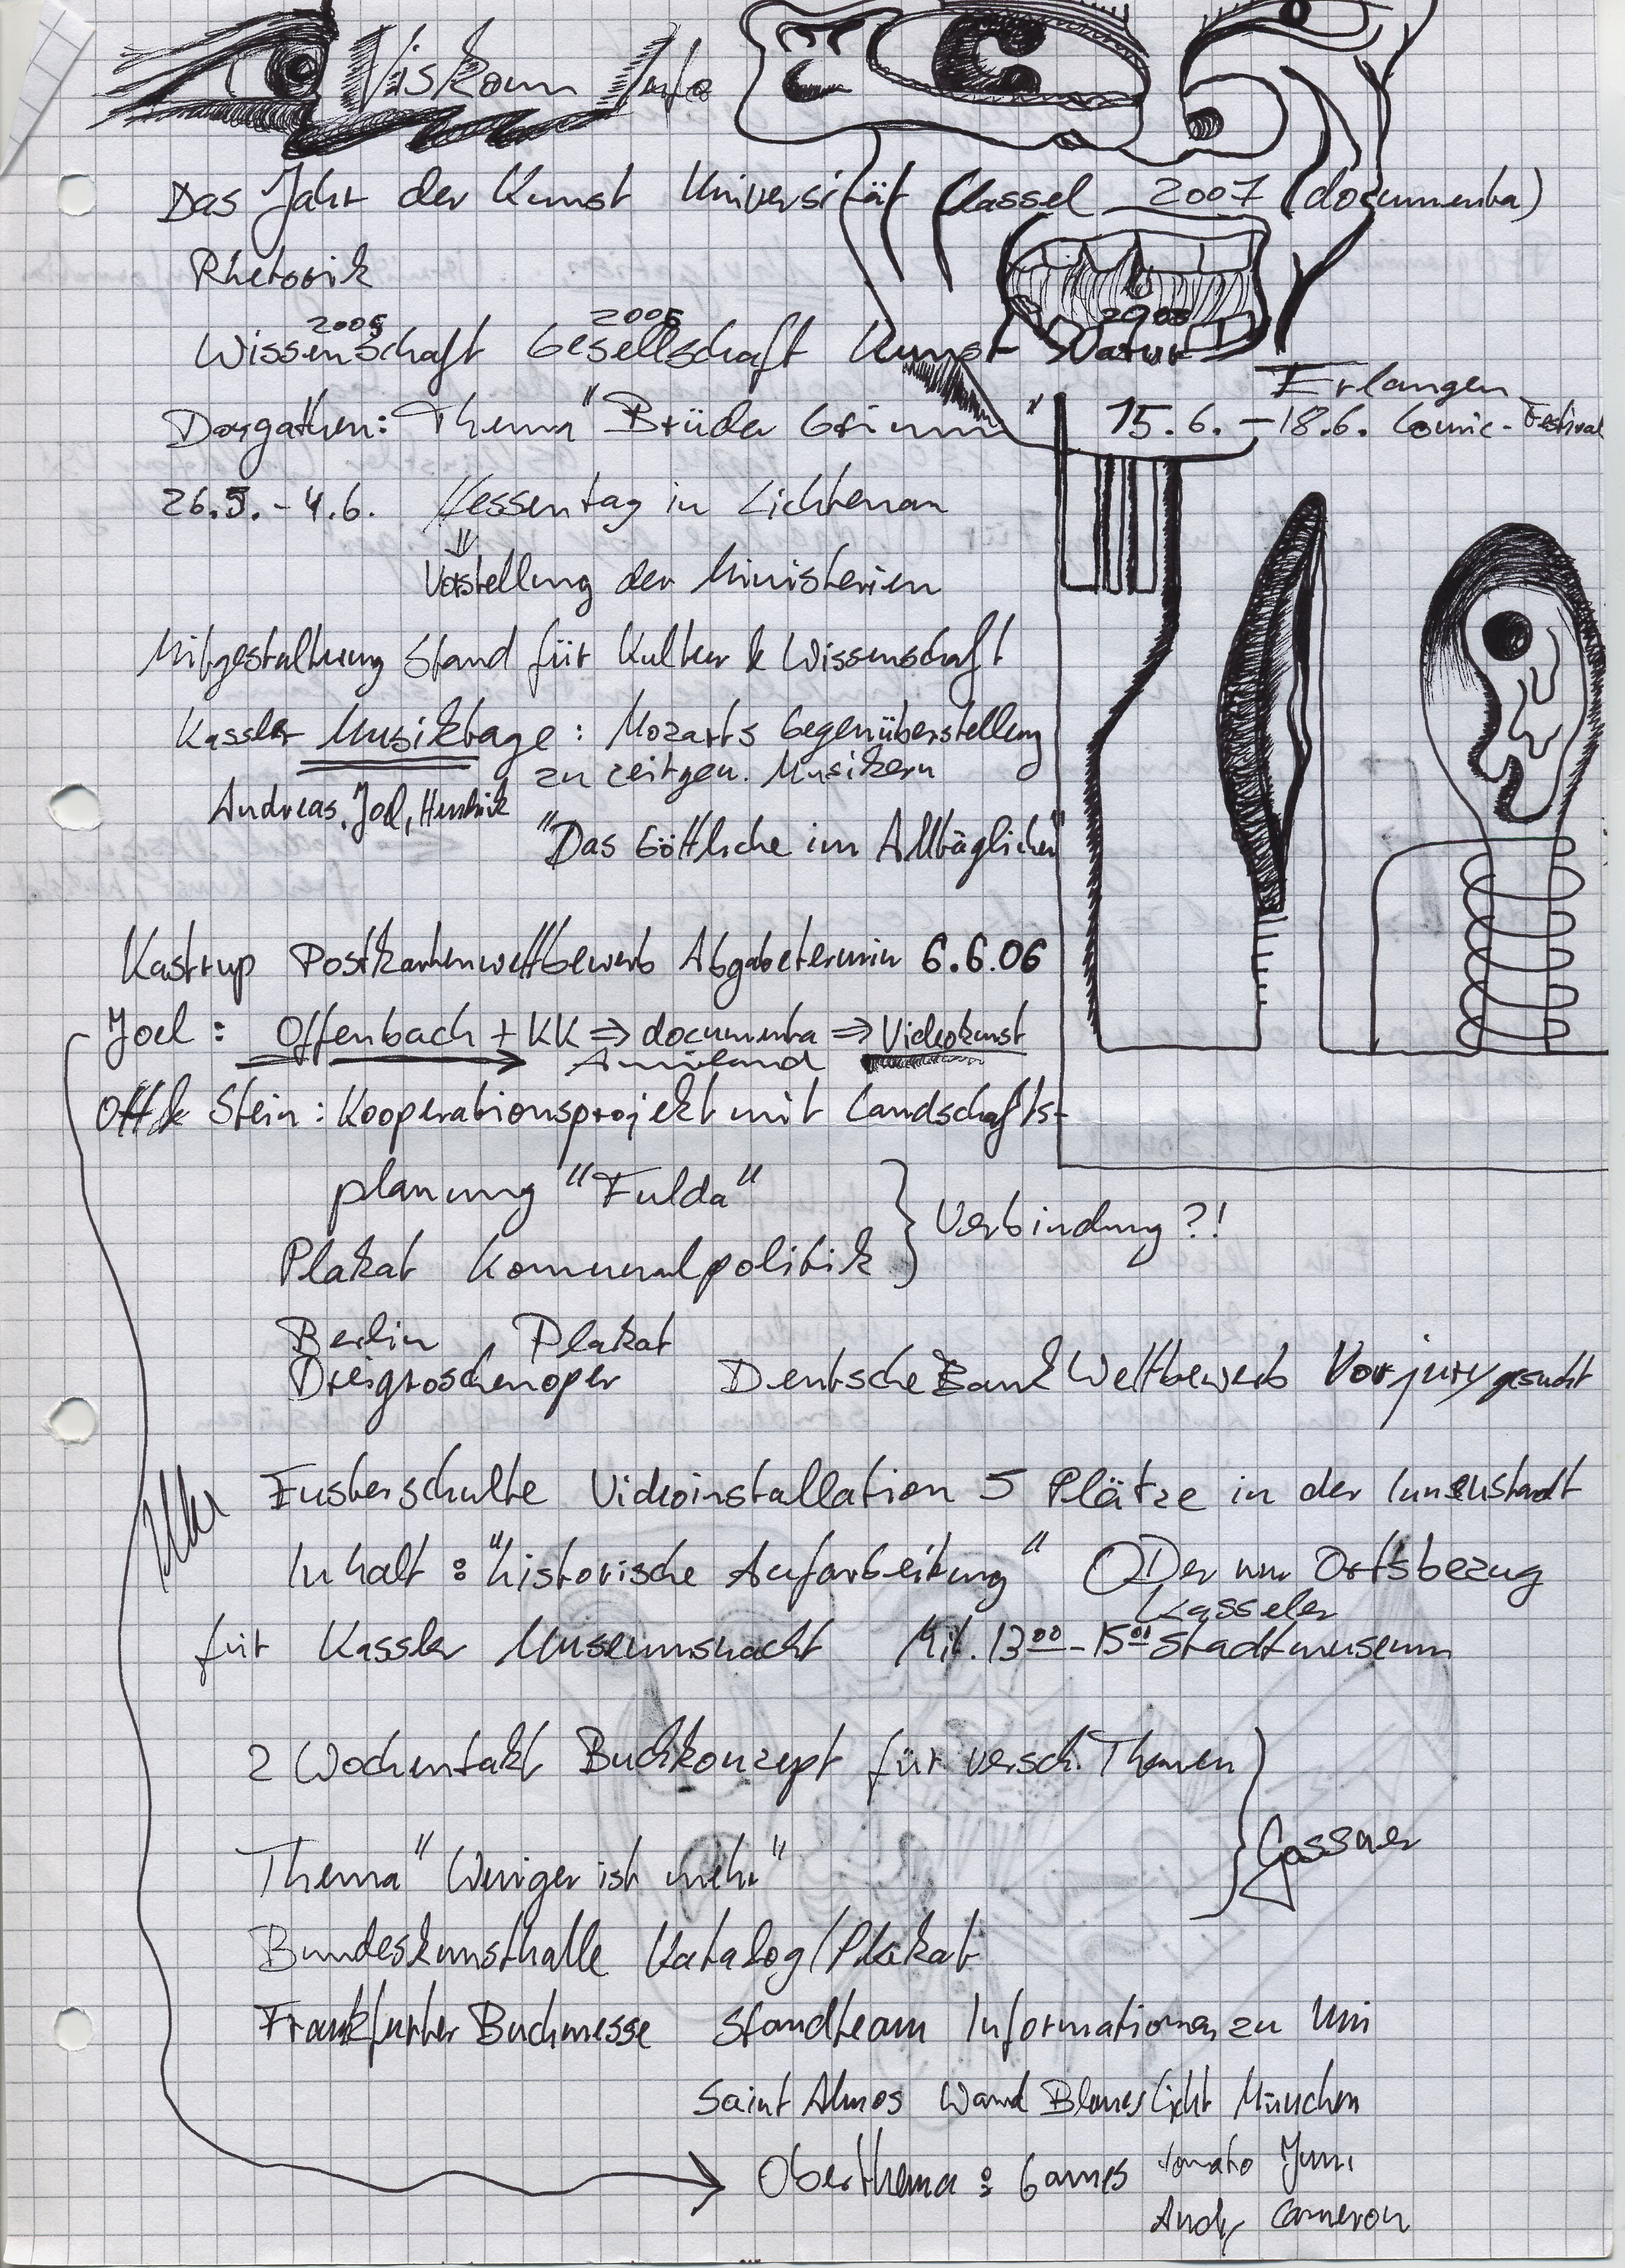 Viskom Info
Das Jahr der Kunst Universität Kassel 2007 (documenta)
Rhetorik
2005 2006 2008
Wissenschaft Gesellschaft Kunst Natur
Erlangen
Dorgathen: Thema "Brüder Grimm" 15.6. – 18.6. Comic-Festival
26.5. - 4.6. Hessentag in Lichtenau
⇓
Vorstellung der Ministerien
Mitgestaltung Stand für Kultur & Wissenschaft
Kassler Musiktage: Mozarts Gegenüberstellung
zu zeitgen. Musikern
Andreas, Joel, Hendrik
"Das Göttliche im Alltäglichen"
Kastrup Postkartenwettbewerb Abgabetermin 6.6.06
Joel: Offenbach + KK ⇒ documenta ⇒ Videokunst
Ott & Stein: Kooperationsprojekt mit Landschafts-
planung "Fulda"
Verbindung?!
Plakat Kommunalpolitik
Berlin Plakat
Dreigroschenoper Deutsche Bank Wettbewerb Vorjury gesucht
Fusterschulte Videoinstallation 5 Plätze in der Innenstadt
Inhalt: "historische Aufarbeitung" ODer nur Ortsbezug
Kasseler
für Kassler Museumsnacht Mi. 13 00 - 15 00 Stadtmuseum
2 Wochentakt Buchkonzept für versch. Themen
Gassner
Thema "Weniger ist mehr"
Bundeskunsthalle Katalog/Plakat
Frankfurter Buchmesse Standteam Informationen zu Uni
Saint Almos Wand Blaues Licht München
Oberthema: Games tomato Juni
Andy Cameron